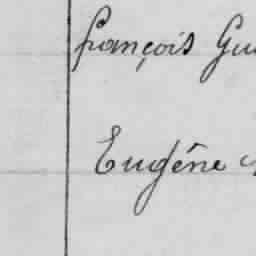 françois
Eugêne